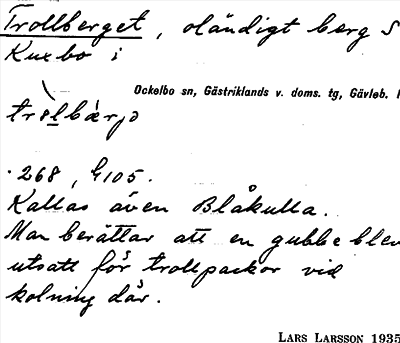 Trollberget, oländigt berg S
Kuxbo i
Ockelbo sn, Gästriklands v. doms. tg, Gävleb. l
·268, G105.
Kallas även Blåkulla.
Man berättar att en gubbe blev
utsatt för trollpackor vid
kolning där.
LARS LARSSON 1935